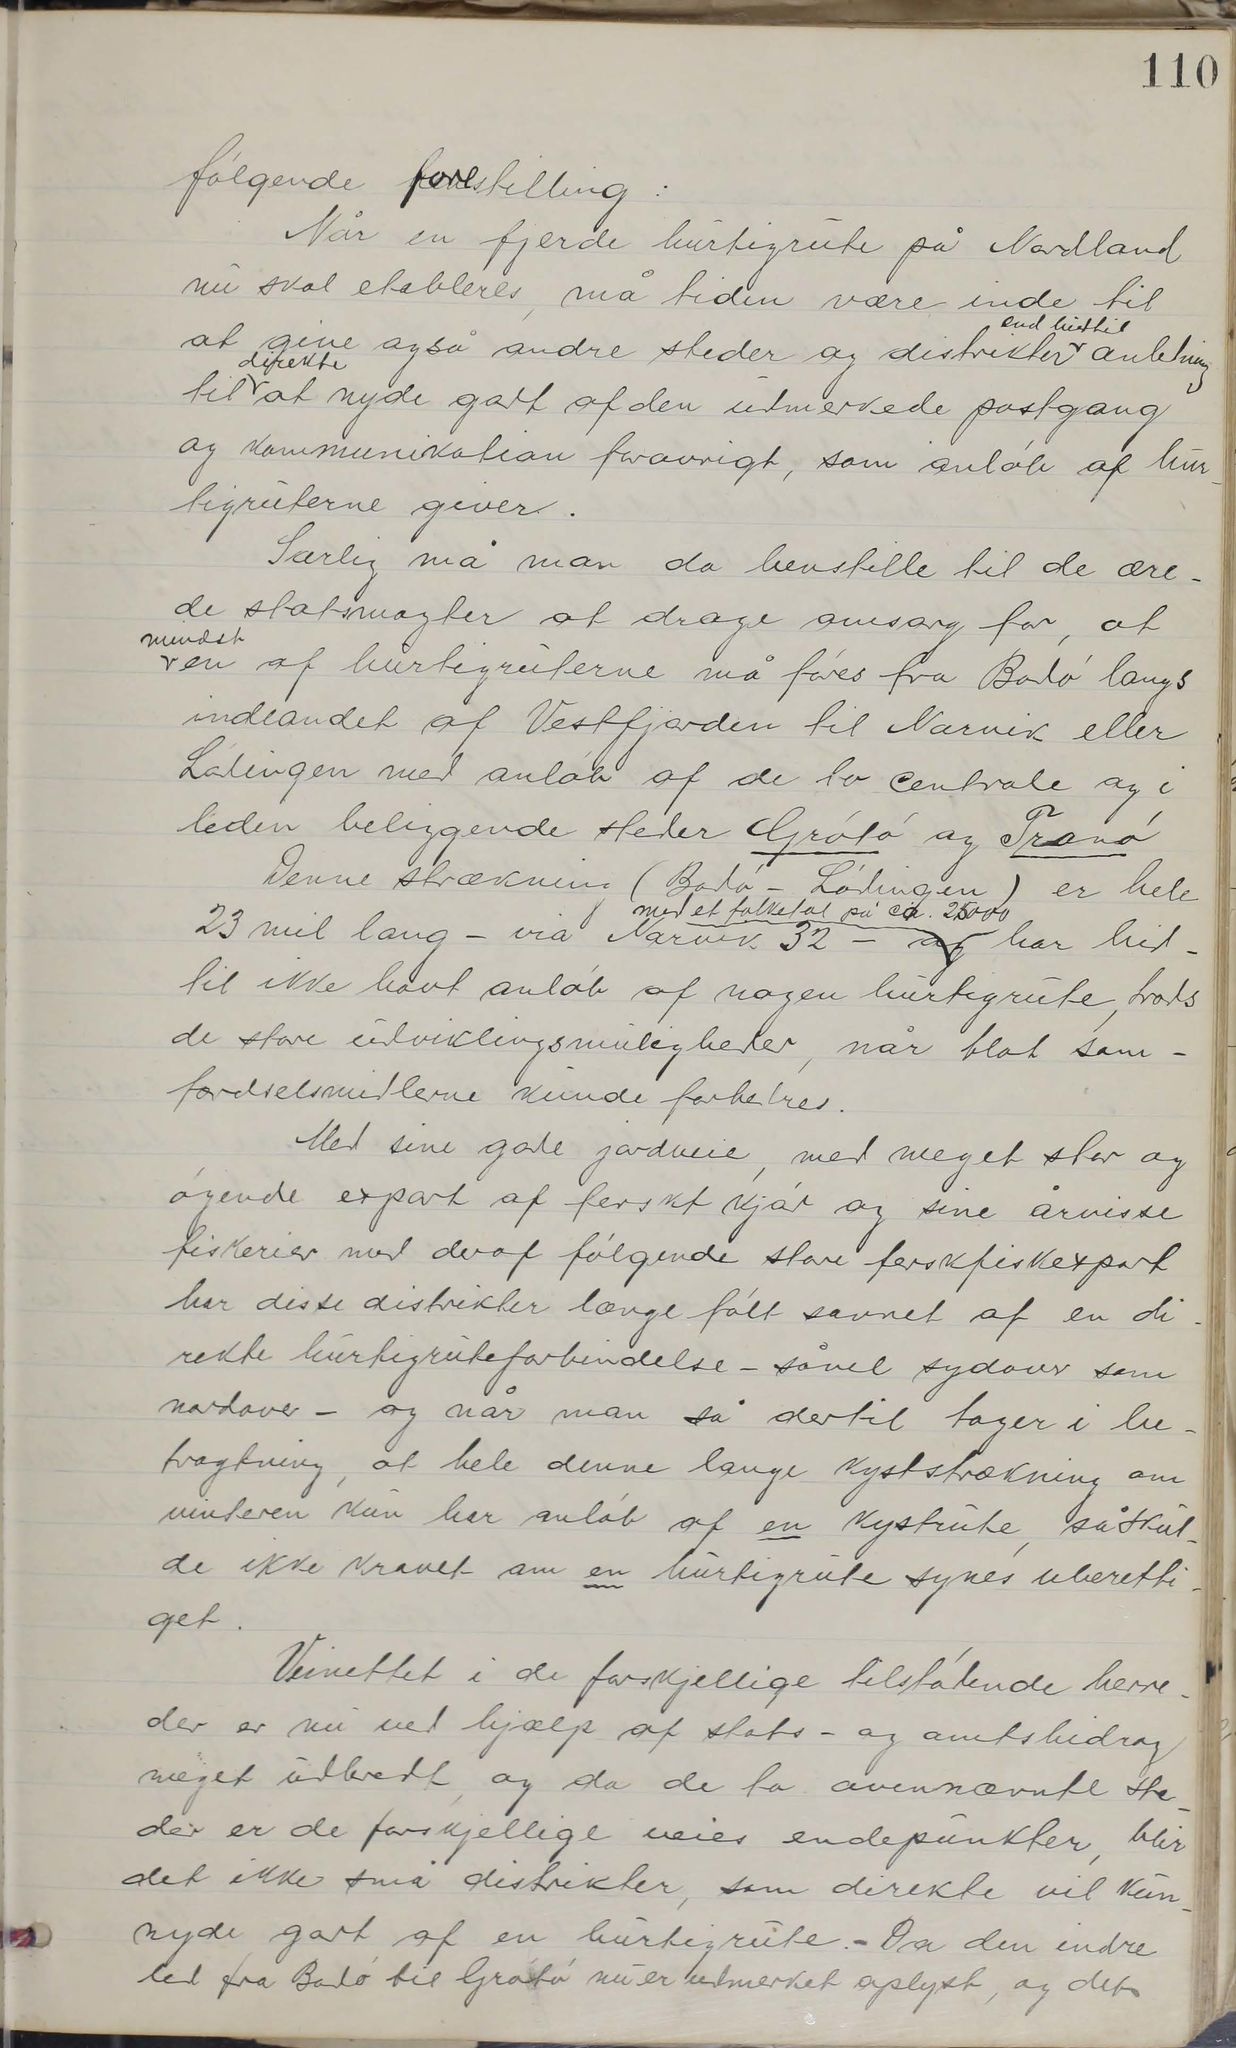 110
følgende forestilling:
Når en fjerde hurtigrute på Nordland
nu skal etableres, må tiden være inde til
end hidtil
at give også andre steder og distrikter anledning
direkte
til at nyde godt af den udmerkede postgang
og kommunikation forøvrigt, som anløb af hur-
tigruterne giver.
Særlig må man da henstille til de ære-
de statsmagter at drage omsorg for, at
mindst
en af hurtigruterne må føres fra Bodø langs
indlandet af Vestfjorden til Narvik eller
Lødingen med anløb af de to centrale og i
leden beliggende steder Grøtø og Tranø
Denne strækning (Bodø - Lødingen) er hele
med et folketal på ca. 25000
23 mil lang - via Narvik 32 - og har hid-
til ikke havt anløb af nogen hurtigrute, trods
de store udviklingsmuligheder, når blot sam-
færdselsmidlerne kunde forbedres.
Med sine gode jordveie, med meget stor og
øgende export af ferskt kjød og sine årvisse
fiskerier med deraf følgende store ferskfiskexport
har disse distrikter længe følt savnet af en di-
rekte hurtigruteforbindelse - såvel sydover som
nordover - og når man så dertil tager i be-
tragtning, at hele denne lange kyststrækning om
vinteren kun har anløb af en kystrute, så skul-
de ikke kravet om en hurtigrute synes uberetti-
get.
Veinettet i de forskjellige tilstødende herre-
der er nu ved hjælp af stats- og amtsbidrag
meget udbredt, og da de to ovennævnte ste-
der er de forskjellige veies endepunkter, blir
det ikke små distrikter, som direkte vil kun-
nyde godt af en hurtigrute. - Da den indre
led fra Bodø til Grøtø nu er udmerket oplyst, og det